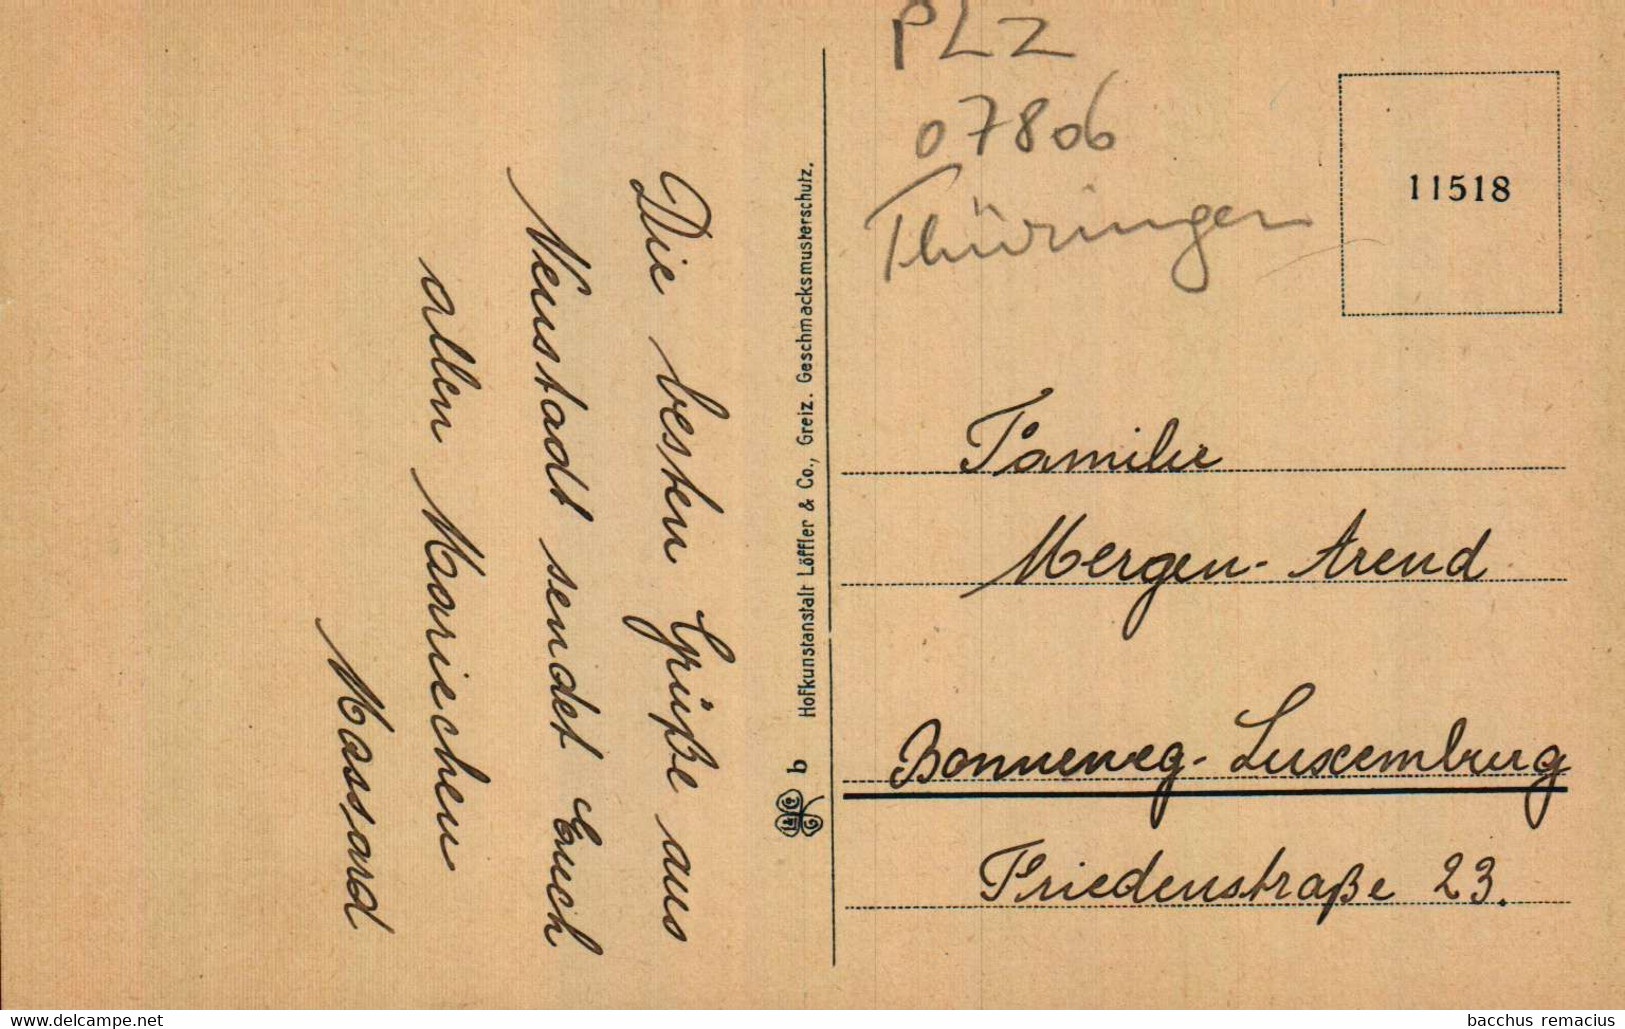 Die besten Grüße aus
Neustadt sendet Euch
allen Mariechen
Massard
b Hofkunstanstalt Löffler & Co., Greiz. Geschmacksmusterschutz.
PLZ
07806
Thüringen
11518
Familie
Mergen-Arend
Bonneweg-Luxemburg
Friedenstraße 23.
www.delcampe.net
bacchus_remacius